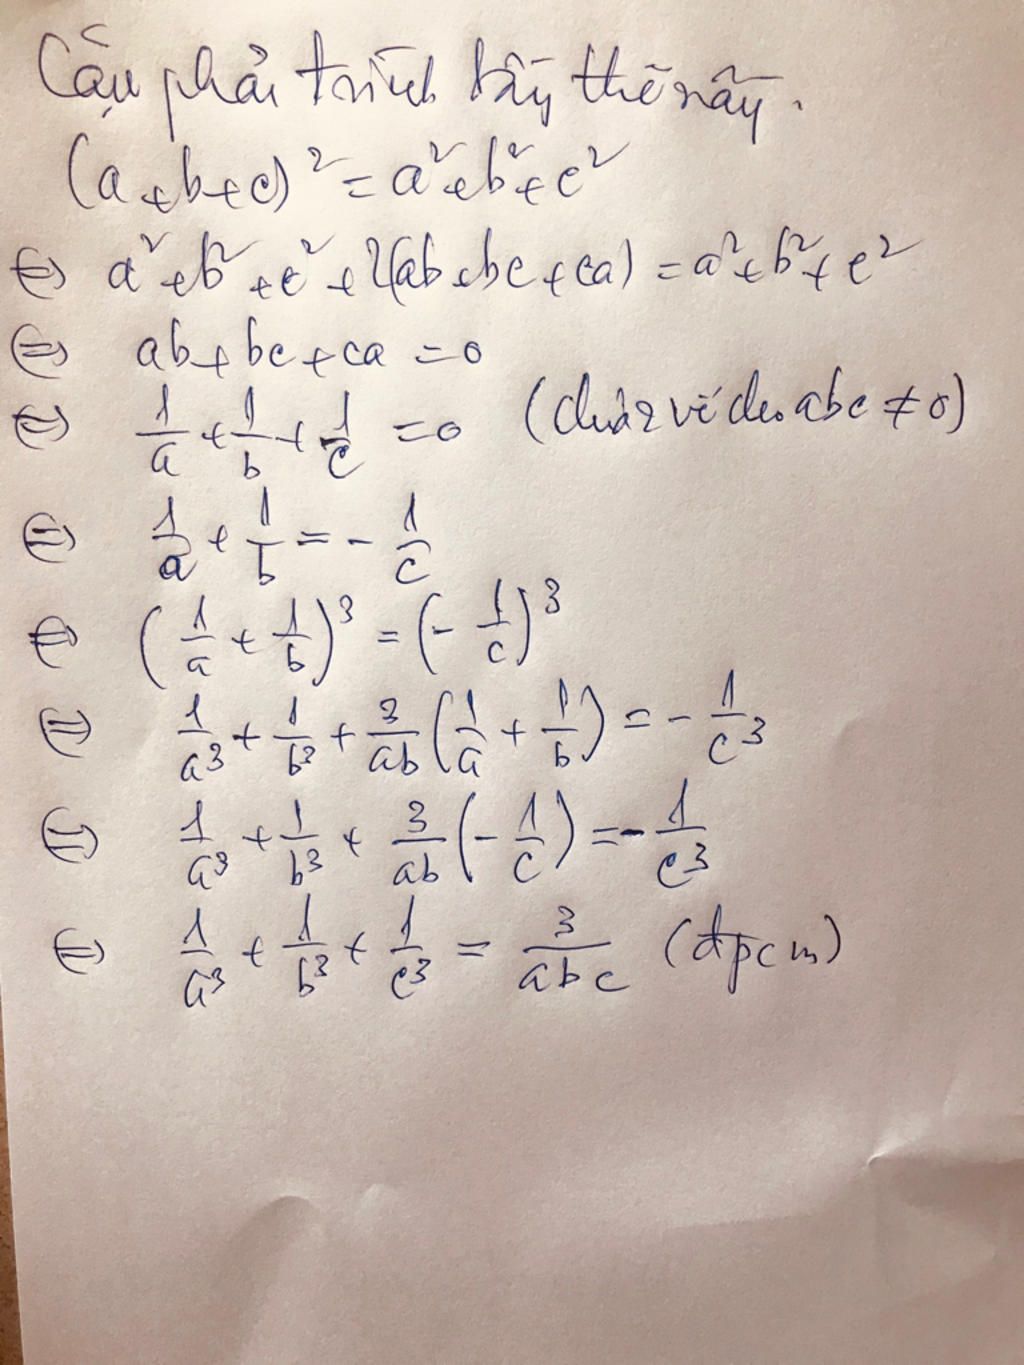 Cậu phải trình bày thế này.
(a+b+c)² = a²+b²+c²
⇔ a²+b²+c²+2(ab+bc+ca) = a²+b²+c²
⇔ ab+bc+ca = 0
⇔ 1/a + 1/b + 1/c = 0 (chia 2 vế cho abc ≠ 0)
⇔ 1/a + 1/b = - 1/c
⇔ (1/a + 1/b)³ = (- 1/c)³
⇔ 1/a³ + 1/b³ + 3/ab (1/a + 1/b) = - 1/c³
⇔ 1/a³ + 1/b³ + 3/ab (- 1/c) = - 1/c³
⇔ 1/a³ + 1/b³ + 1/c³ = 3/abc (đpcm)